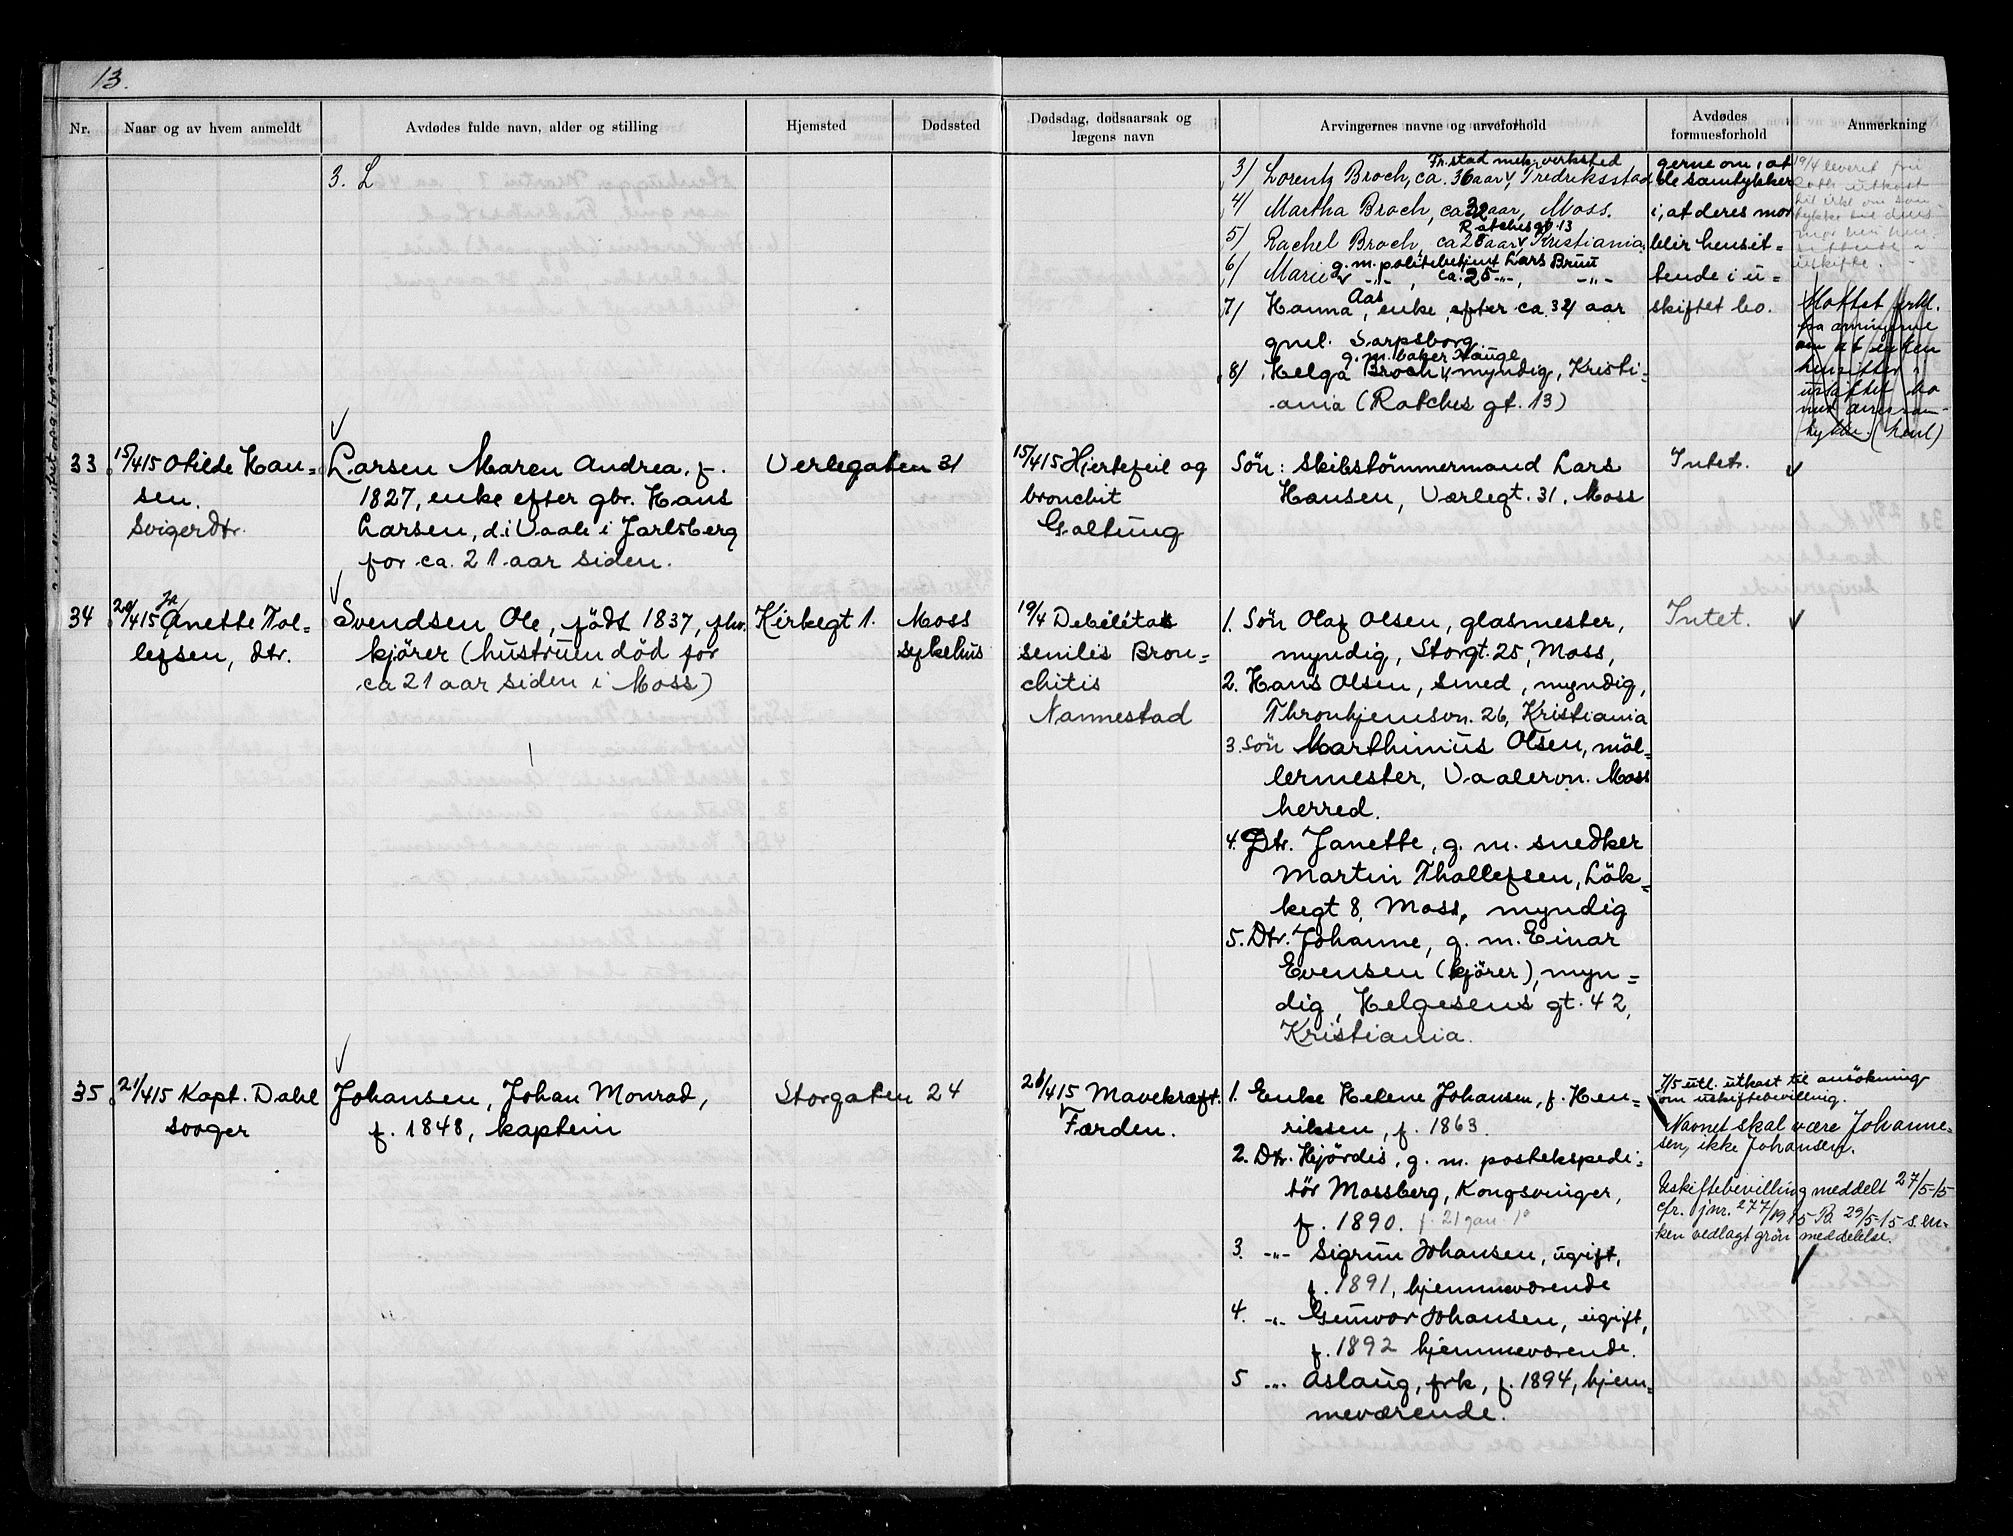 13.
Nr.
Naar og av hvem anmeldt
Avdødes fulde navn, alder og stilling
Hjemsted
Dødssted
Dødsdag, dødsaarsak og
lægens navn
Arvingernes navne og arveforhold
Avdødes
formuesforhold
Anmerkning
3. L
Fr.stad mek. verksted
3/ Lorentz Broch, ca. 36 aar, Fredriksstad
4/ Martha Broch, ca 32 aar, Moss.
Ratches gt 13
5/ Rachel Broch, ca 28 aar, Kristiania,
g.m. politibetjent Lars Bruu
6/ Marie -"-, ca. 25 -"-, -"-
Aas
7/ Hanna, enke, efter ca. 34 aar
gml. Sarpsborg.
g.m. baker Hauge
8/ Helga Broch, myndig, Kristi-
ania (Ratches gt. 13)
gerne om, at
de samtykker
i, at deres mor
blir hensit-
tende i u-
skiftet bo.
19/4 leveret
utkast
til erkl. om sam-
tykke til
mor
uskifte.
Mottat erkl.
fra arvingerne
om at enken
hensitter i
uskiftet bo
med deres sam-
tykke. (henl)
33
15/415 Otilde Han-
sen.
Svigerdtr.
Larsen Maren Andrea, f.
1827, enke efter gbr. Hans
Larsen, d. i Vaale i Jarlsberg
for ca. 21 aar siden.
Verlegaten 31
15/415 Hjertefeil og
bronchit
Galtung
Søn: Skibstømmermand Lars
Hansen, Værlegt. 31, Moss
Intet.
34
20/415 Anette Tol-
lefsen, dtr.
Svendsen Ole, født 1837, fhv.
kjører (hustruen død for
ca 21 aar siden i Moss)
Kirkegt 1.
Moss
sykehus
19/4 Debilitas
senilis Bron-
chitis
Nannestad
1. Søn Olaf Olsen, glasmester,
myndig, Storgt. 25, Moss,
2. Hans Olsen, smed, myndig,
Thronhjemsvn. 26, Kristiania
3. Søn Marthinius Olsen, møl-
lermester, Vaalervn. Moss
herred.
4. Dtr. Janette, g. m. snedker
Martin Thollefsen, Løk-
kegt 8, Moss, myndig
5. Dtr. Johanne, g. m. Einar
Evensen (kjører), myn-
dig, Helgesens gt. 42,
Kristiania.
Intet.
35
21/415 Kapt. Dahl
svoger
Johansen, Johan Monrad,
f. 1848, kaptein
Storgaten 24
21/415 Mavekræft.
Færden.
1. Enke Helene Johansen, f. Hen-
riksen, f. 1863.
2. Dtr. Hjørdis, g. m. postekspedi-
tør Mossberg, Kongsvinger,
f. 1890. f. 21 jan. 19
3. -"- Sigrun Johansen, ugift,
f. 1891, hjemmeværende
4. -"- Gunvor Johansen, ugift,
f. 1892 hjemmeværende.
5 -"- Aslaug, frk, f. 1894, hjem-
meværende.
7/5 utl. utkast til ansøkning
om uskiftebevilling.
Navnet skal være Johanne-
sen, ikke Johansen.
Uskiftebevilling meddelt 27/5-15
cfr. jnr. 277/1915 B. 29/5-15 s. en-
ken vedlagt grøn meddelelse.